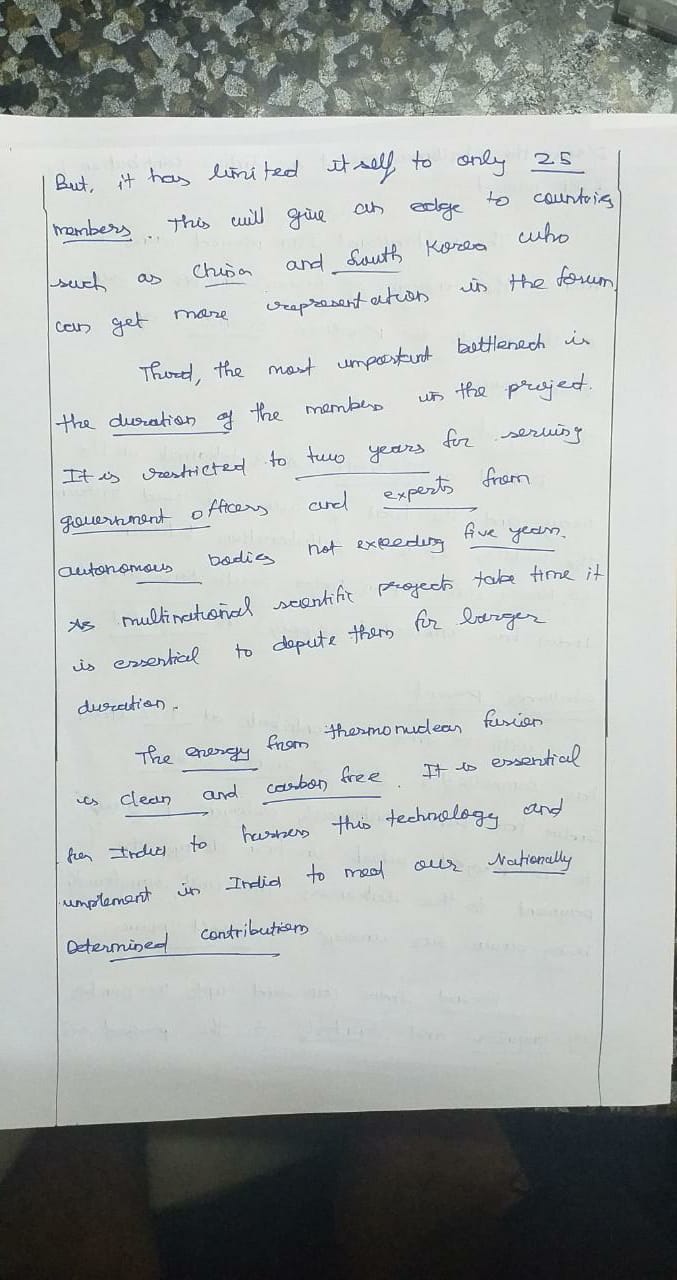 But, it has limited itself to only 25
members. This will give an edge to countries
such as China and South Korea who
can get more representation in the forum.
Third, the most important bottleneck is
the duration of the members in the project.
It is restricted to two years for serving
government officers and experts from
autonomous bodies not exceeding five years.
As multinational scientific projects take time it
is essential to depute them for larger
duration.
The energy from thermonuclear fusion
is clean and carbon free. It is essential
for India to harness this technology and
implement in India to meet our Nationally
Determined contributions